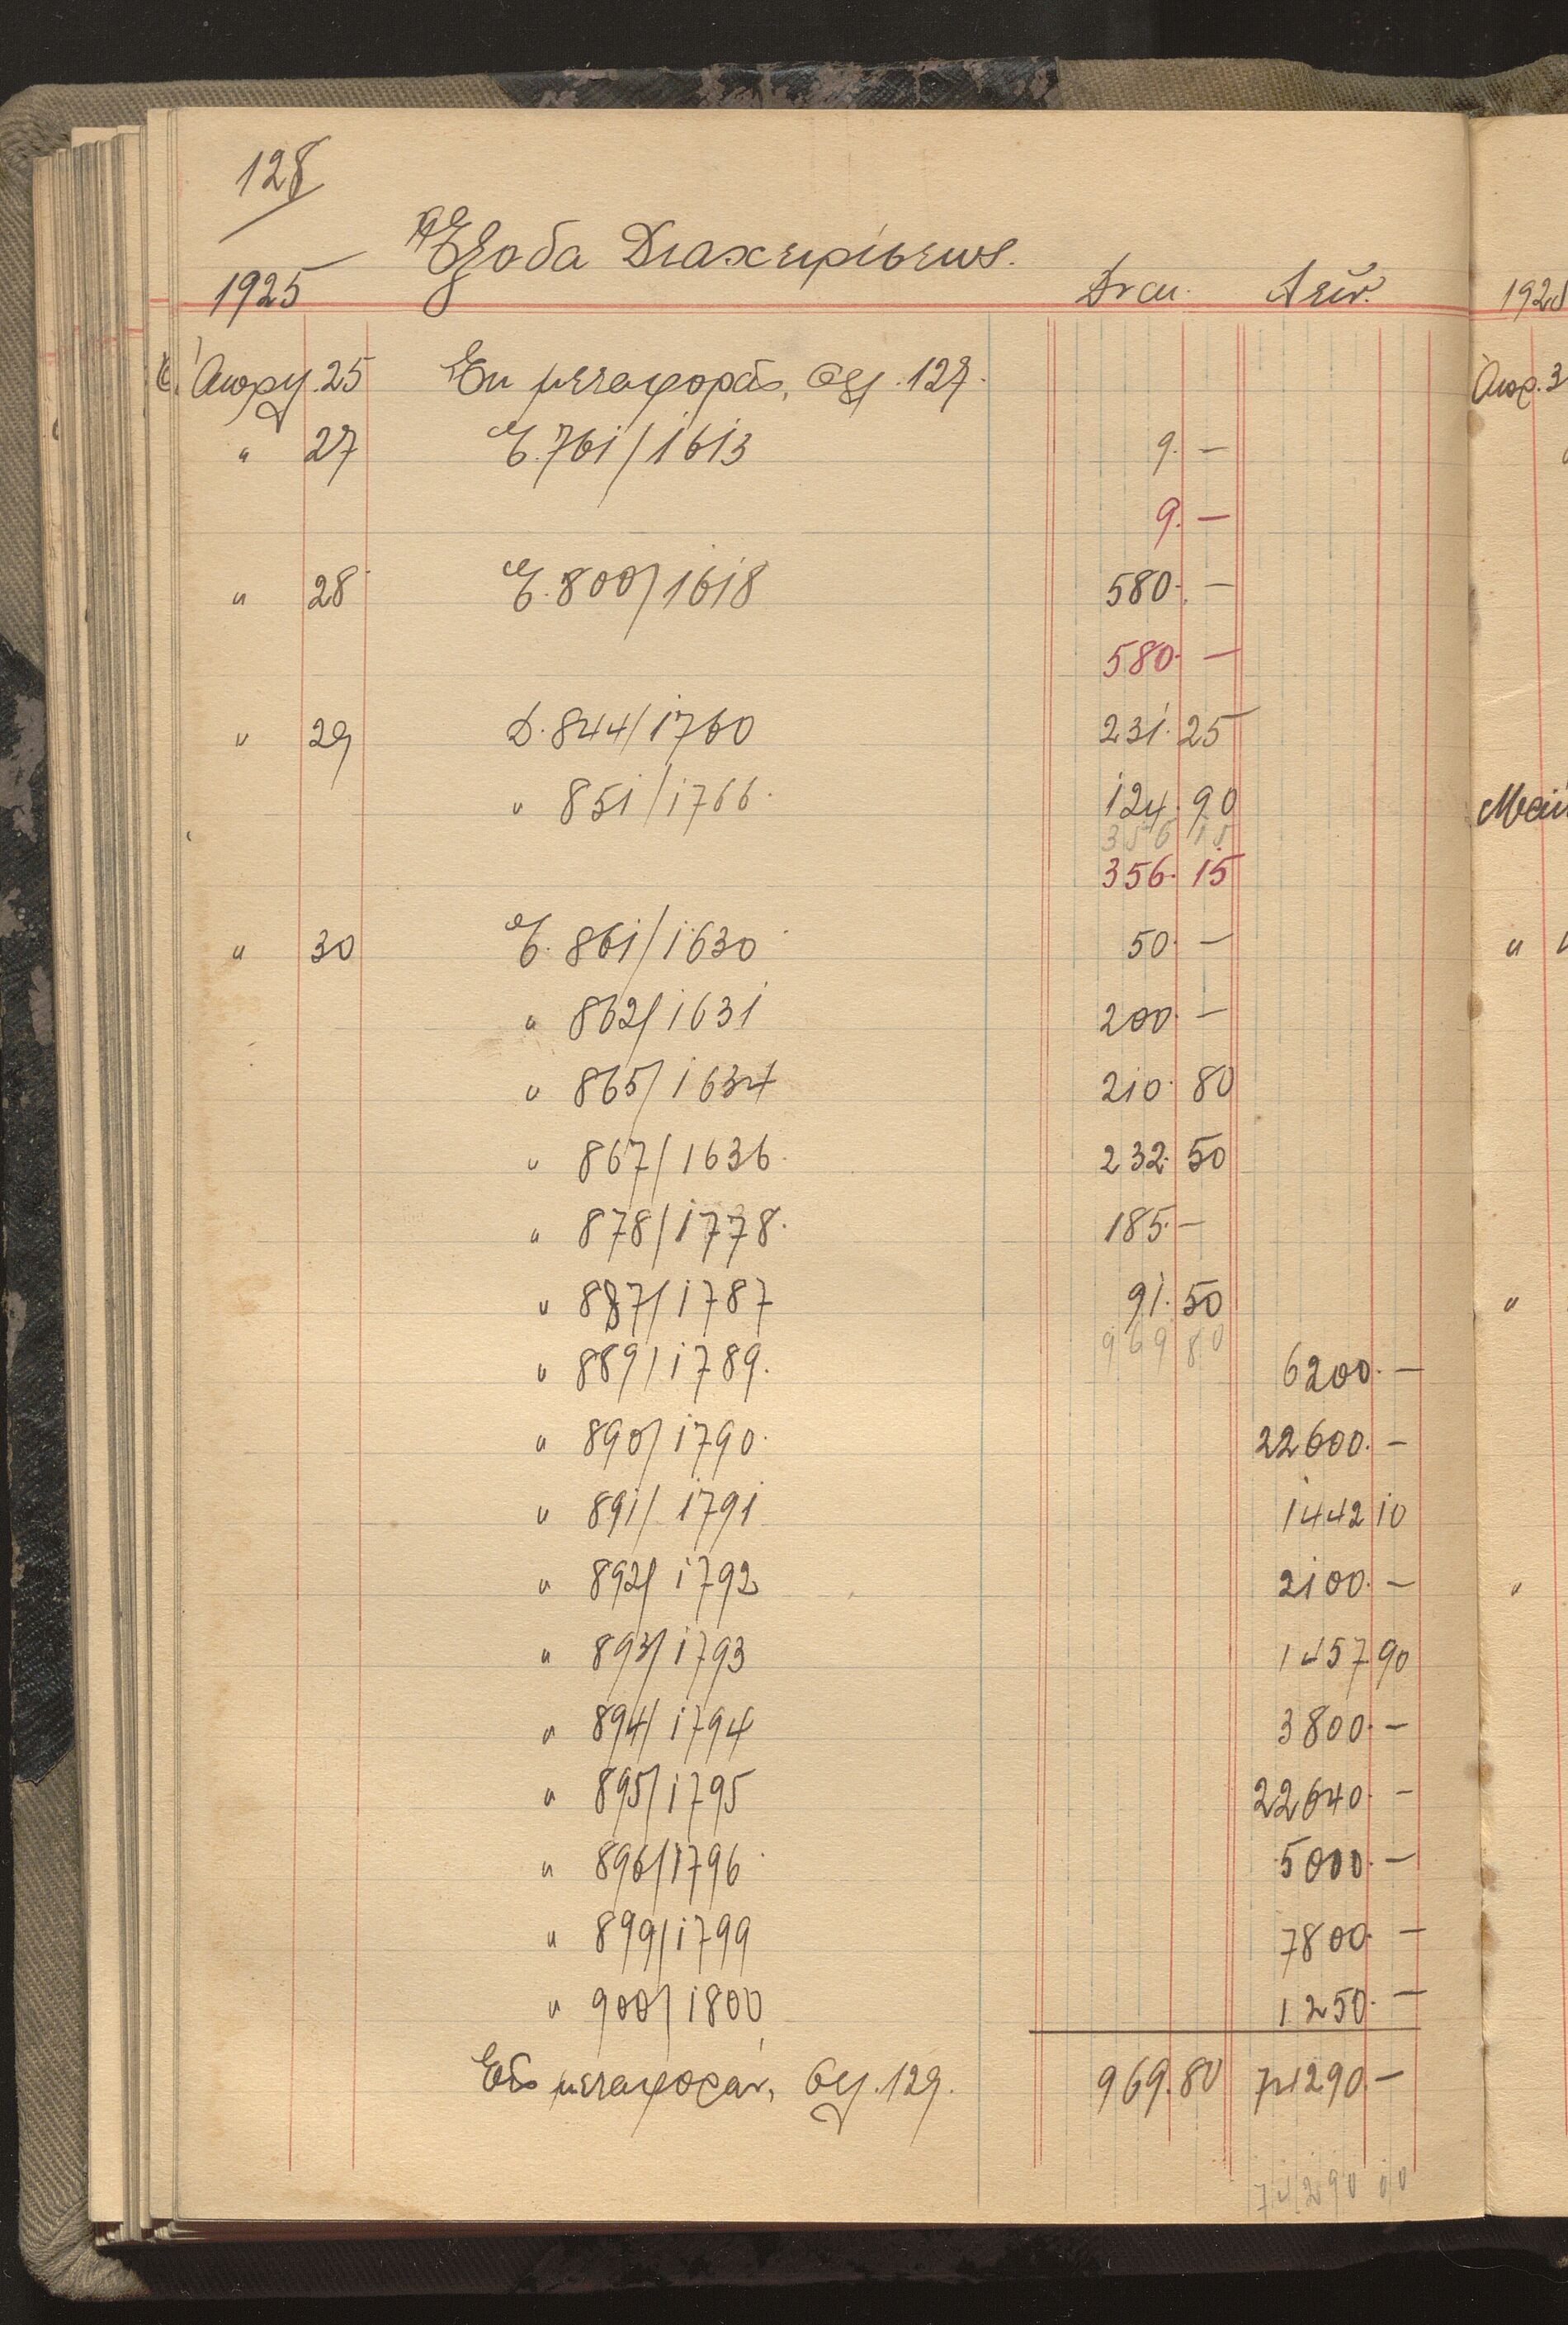 128
Ἔξοδα Διαχειρίσεως.
1925 Δραχ. Λεῦ.
Ἀπρ. 25 Ἐκ μεταφορᾶς, σελ. 127.
" 27 Ε. 761/1613 9. —
9. —
" 28 Ε. 800/1618 580. —
580. —
" 29 Δ. 844/1760 231. 25
" 851/1766. 124. 90
356 15
356. 15
" 30 Ε. 861/1630 50. —
" 862/1631 200. —
" 865/1634 210. 80
" 867/1636. 232. 50
" 878/1778. 185. —
" 887/1787 91. 50
969 80
" 889/1789. 6200. —
" 890/1790. 22600. —
" 891/1791 1442 10
" 892/1792 2100. —
" 893/1793 1457 90
" 894/1794 3800. —
" 895/1795 22640. —
" 896/1796 5000. —
" 899/1799 7800. —
" 900/1800 1250. —
Εἰς μεταφοράν, σελ. 129. 969. 80 74290. —
74290 00